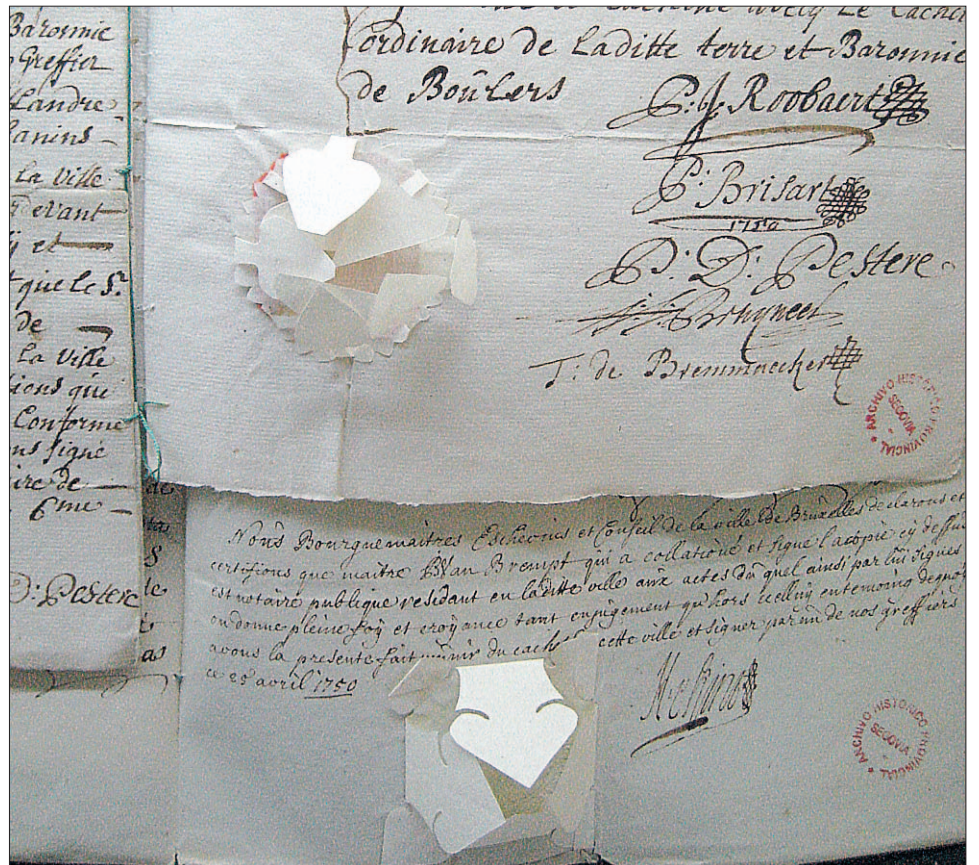 Baronnie
Greffier
Landre
la Ville
devant
ÿ et
que le Sr.
de
La Ville
tions que
Conforme
ns signé
ire de
6me
D: Pestere
ordinaire de Laditte terre et Baronnie
de Boûlers
P: J. Roobaert
P: Brisart
1750
P: D: Pestere
T: de Bremmaecker
ARCHIVO HISTORICO PROVINCIAL
SEGOVIA
Noûs Bourguemaitres Eschevins et Conseil de la ville de Bruxelles declarons et
certifions que maitre Van Brempt qui a collationé et signé la copie cÿ dessus
est notaire publique residant en laditte ville aux actes dû quel ainsi par lui signés
on donne pleine foÿ et croÿance tant en jugement qu'hors
avons la presente fait munir du cachet cette ville et signer par un de nos greffiers
ce 25 avril 1750
ARCHIVO HISTORICO PROVINCIAL
SEGOVIA